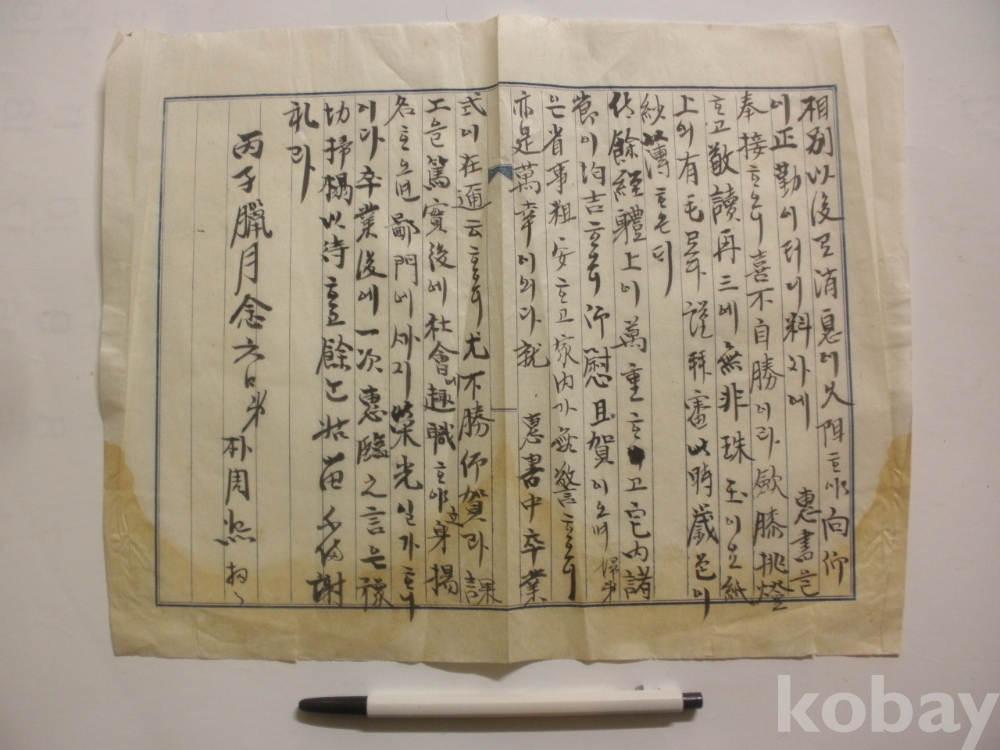 相別以後로消息에久阻ᄒᆞ야向仰
이正勤이터니料外에 惠書을
奉接ᄒᆞ오니喜不自勝이라欹膝挑燈
ᄒᆞ고敬讀再三에無非珠玉이요紙
上의有毛로다謹拜審此時歲色이
紗薄ᄒᆞ온ᄃᆡ
餘經體上이萬重ᄒᆞ고宅內諸
이均吉ᄒᆞ온니仰慰且賀이오며 婦弟
은省事粗安ᄒᆞ고家內가無警ᄒᆞ오니
亦是萬幸이외다就 惠書中卒業
式이在邇云ᄒᆞ오니尤不勝仰賀라課
工을篤實後에社會에趣職ᄒᆞ야立身揚
名ᄒᆞ오면鄙門에ᄭᆞ지榮光일가ᄒᆞ니
이다卒業後에一次惠臨之言은
切掃榻以待耳餘은姑留不備謝
禮라
丙子臘月念六日弟 朴周
kobay